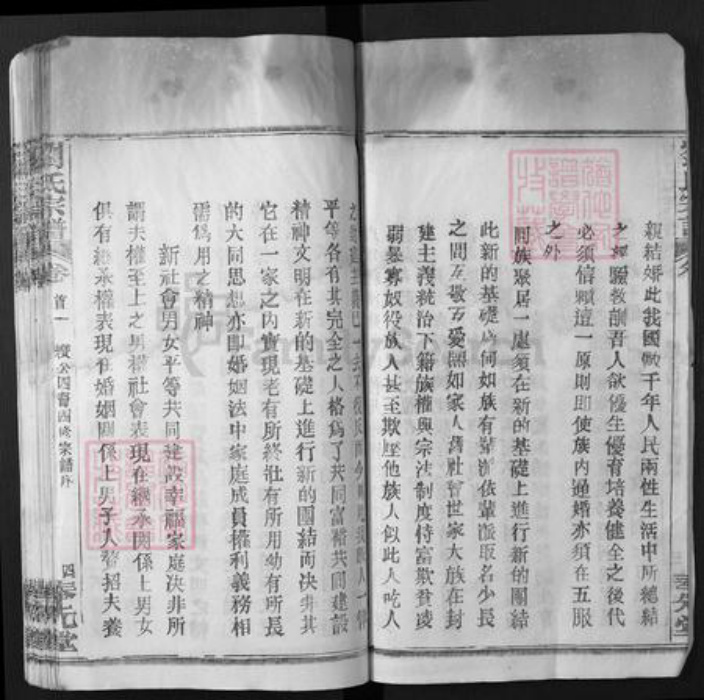 親結婚此我國數千年人民兩性生活中所總結
之經驗教訓吾人欲優生優育培養健全之後代
必須信賴這一原則即使族內通婚亦須在五服
之外
同族聚居一處須在新的基礎上進行新的團結
此新的基礎為何如族有輩派依輩派取名少長
之間互敬互愛照如家人舊社會世家大族在封
建主義統治下籍族權與宗法制度恃富欺貧凌
弱暴寡奴役族人甚至欺壓他族人似此人吃人
平等各有其完全之人格為了共同富裕共同建設
精神文明在新的基礎上進行新的團結而決非其
它在一家之內實現老有所終壯有所用幼有所長
的大同思想亦即婚姻法中家庭成員權利義務相
儒為用之精神
新社會男女平等共同建設幸福家庭決非所
謂夫權至上之男權社會表現在繼承關係上男女
俱有繼承權表現在婚姻關係上男子入贅招夫養
劉氏宗譜 卷首一 四修宗譜序 四 元堂